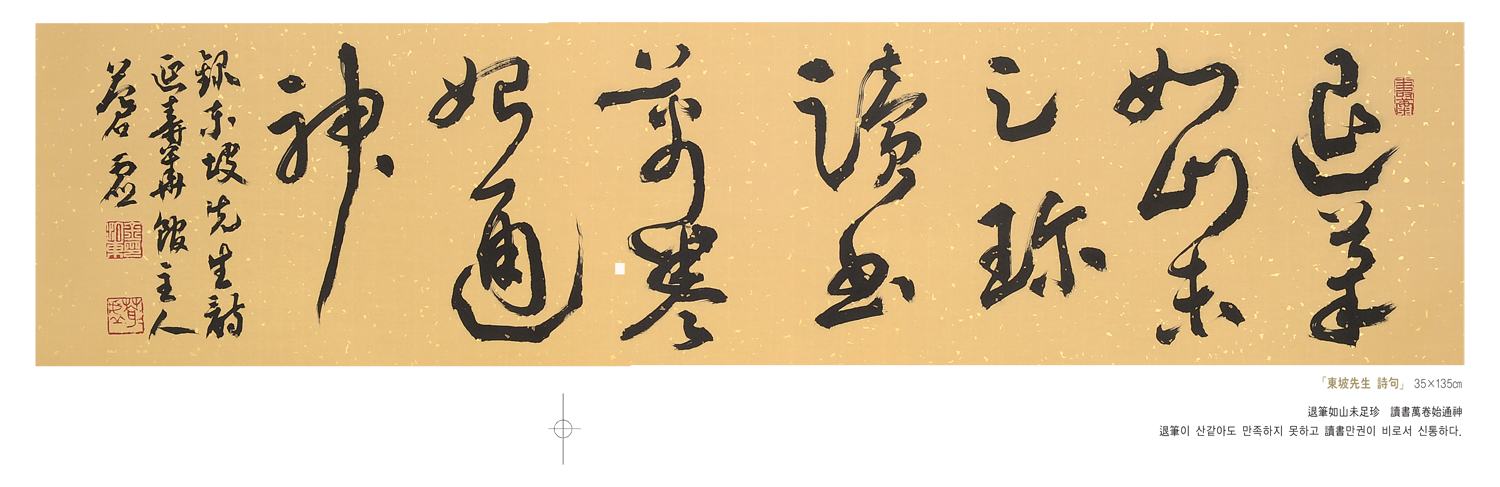 退筆
如山未
足珍
讀書
萬卷
始通
神
錄東坡先生詩
延壽華館主人
「東坡先生 詩句」 35×135㎝
退筆如山未足珍 讀書萬卷始通神
退筆이 산같아도 만족하지 못하고 讀書만권이 비로서 신통하다.